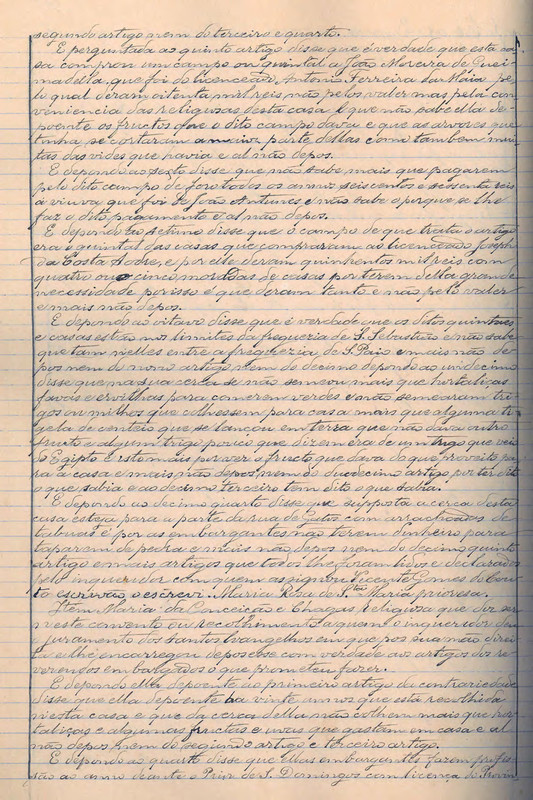 segundo artigo nem do terceiro e quarto.
E perguntada ao quinto artigo disse que é verdade que esta ca-
sa comprou um campo ou quintal a João Moreira de Guei-
madella, que foi do licenceado, Antonio Ferreira da Maia pe-
lo qual deram oitenta mil reis não pelos valer mas pela con-
veniencia das religiosas desta casa e que não sabe ella de-
poente os fructos que o dito campo dava e que as arvores que
tinha se cortaram a maior parte dellas como tambem mui-
tas das vides que havia e al não depos.
E depondo ao sexto disse que não sabe mais que pagarem
pelo dito campo de foro todos os annos seiscentos e sessenta reis
á viuva que foi de João Antunes e não sabe o porque se lhe
faz o dito pagamento e al não depos.
E depondo ao setimo disse que o campo de que trata o artigo
era o quintal das casas que compraram ao licenceado Joseph
da Costa Nobre, e por elle deram quinhentos mil reis com
quatro ou cinco moradas de casas por terem della grande
necessidade por isso é que deram tanto e não pelo valer
e mais não depos.
E depondo ao oitavo disse que é verdade que os ditos quintaes
e casas estão nos limites da freguezia de S. Sebastião e não sabe
que tam nelles entre a freguezia de S. Paio e mais não de-
pos nem do nono artigo nem do decimo depondo ao undecimo
disse que na sua cerca se não semeou mais que hortaliças
favas e ervilhas para comerem verdes e não semearam tri-
gos ou milhos que colhessem para casa mais que alguma ti-
gela de centeio que se lançou em terra que não dava outro
fructo e algum trigo pouco que dizem era de um trigo que veio
do Egipto e isto mais por ver o fructo que dava do que proveito pa-
ra a casa e mais não depos nem do duodecimo artigo por ter dito
o que sabia e ao decimo terceiro tem dito o que sabia.
E depondo ao decimo quarto disse que supposta a cerca desta
casa esteja para a parte da rua de com de
taboas é por as embargantes não terem dinheiro para
taparem de pedra e mais não depos nem do decimo quinto
artigo em mais artigos que todos lhe foram lidos e declarados
pelo inquiridor com quem assignou Vicente Gomes do Cou-
to escrivão o escrevi. Maria Rosa de S.ta Maria prioresa.
Item Maria da Conceição e Chagas religiosa que diz ser
neste convento ou recolhimento a quem o inqueredor deu
o juramento dos Santos Evangelhos em que pos sua mão direi-
ta e lhe encarregou depozesse com verdade aos artigos dos re-
verendos embargados o que prometeu fazer.
E depondo ella depoente ao primeiro artigo da contrariedade
disse que ella depoente ha vinte annos que está recolhida
nesta casa e que da cerca della não colham mais que hor-
taliças e algumas fructas e uvas que gastam em casa e al
não depos nem do segundo artigo e terceiro artigo.
E depondo ao quarto disse que ellas embargantes fazem profis-
são ao anno deante o Prior de S. Domingos com licença do Provin